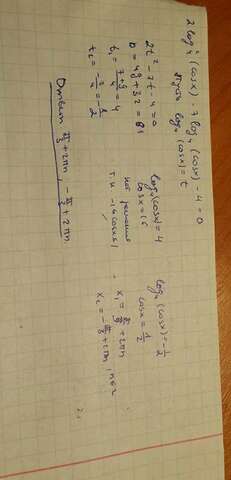 2 log₄² (cosx) - 7 log₄ (cosx) - 4 = 0
пусть log₄ (cosx) = t
2t² - 7t - 4 = 0
D = 49 + 32 = 81
t₁ = 7+9/4 = 4
t₂ = -2/4 = -1/2
log₄(cosx) = 4
cosx = 16
нет решения
т.к. -1≤cosx≤1
log₄ (cosx) = -1/2
cosx = 1/2
x₁ = π/3 + 2πn
x₂ = -π/3 + 2πn, n∈z
Ответ: π/3 + 2πn, -π/3 + 2πn